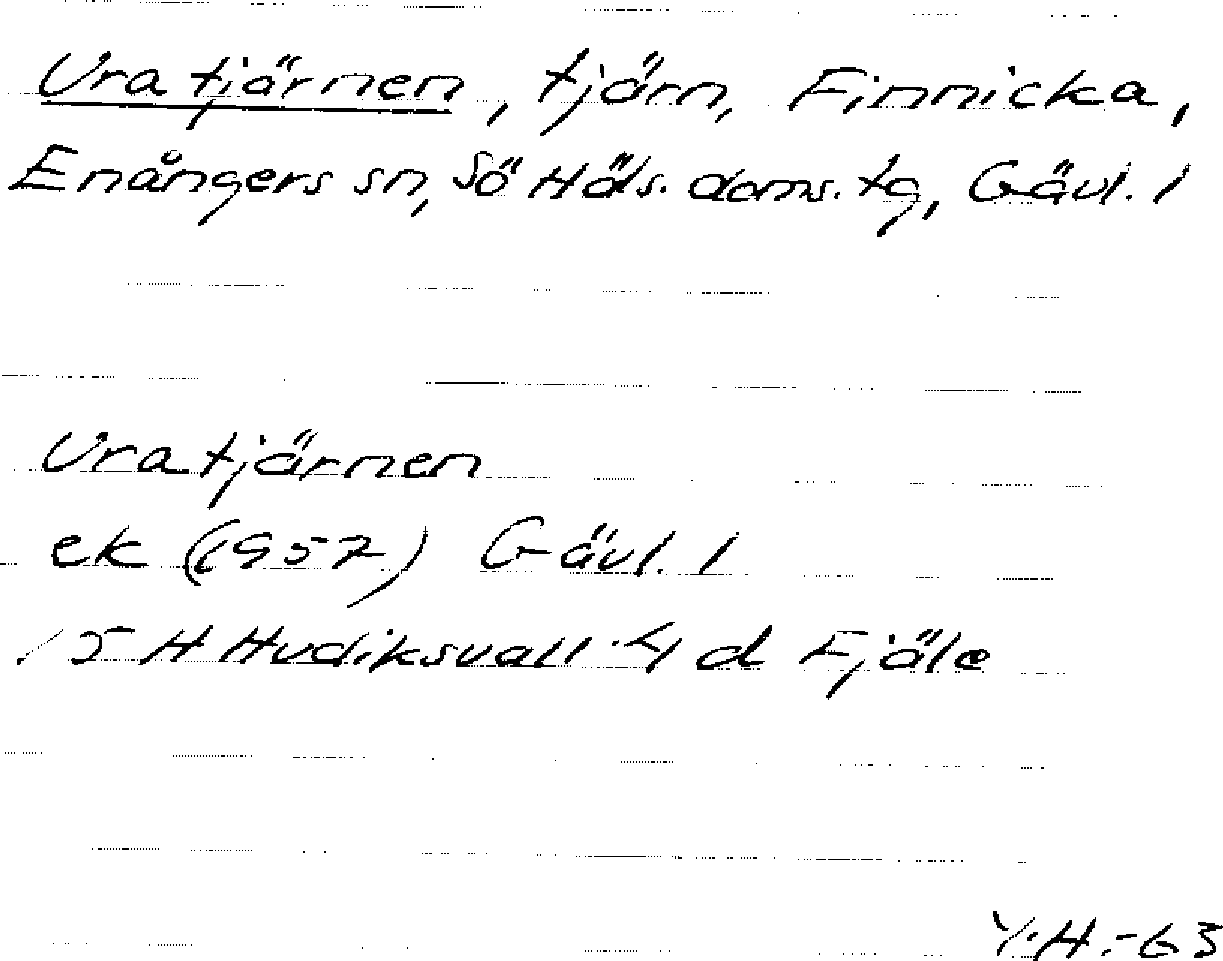 Uratjärnen, tjärn, Finnicka,
Enångers sn, Sö Häls. doms. tg, Gävl. l
Uratjärnen
ek (1957) Gävl. l
15 H Hudiksvall 4 d Fjäle
Y.H.-63